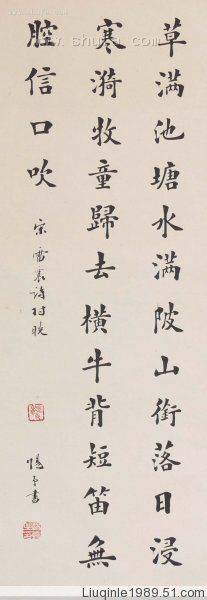 草满池塘水满陂山衔落日浸
寒漪牧童歸去横牛背短笛無
腔信口吹
宋雷震詩村晚
書
Liuqinle1989.51.com